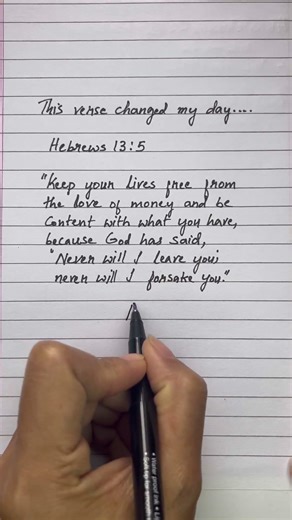 This verse changed my day....
Hebrews 13:5
"Keep your lives free from
the love of money and be
content with what you have,
because God has said,
"Never will I leave you;
never will I forsake you."
Water proof ink